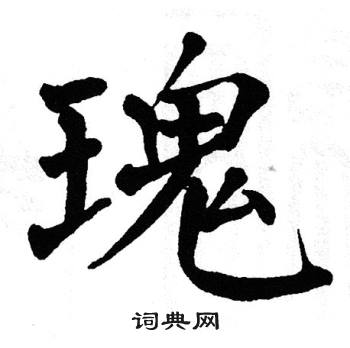 瑰
词典网